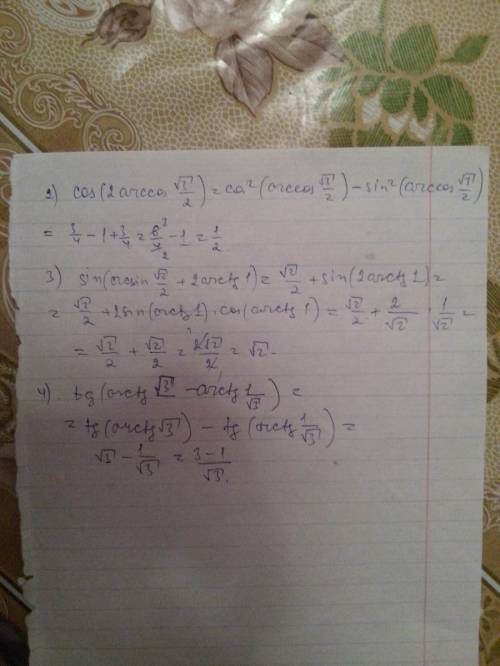 2) cos(2arccos √3/2) = cos²(arccos √3/2) − sin²(arccos √3/2)
= 3/4 − 1 + 3/4 = 6³/4₂ − 1 = 1/2
3) sin(arcsin √2/2 + 2arctg 1) = √2/2 + sin(2arctg 1) =
= √2/2 + 2sin(arctg 1) · cos(arctg 1) = √2/2 + 2/√2 · 1/√2 =
= √2/2 + √2/2 = 2√2/2 = √2.
4). tg(arctg √3 − arctg 1/√3) =
= tg(arctg √3) − tg(arctg 1/√3) =
√3 − 1/√3 = 3−1/√3.